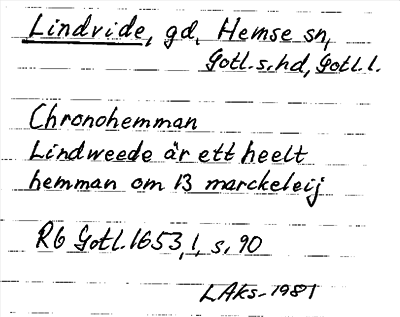 Lindvide, gd, Hemse sn,
Gotl. s. hd, Gotl. l.
Chronohemman
Lindweede är ett heelt
hemman om 13 marckeleij
Rb Gotl. 1653, 1, s. 90
LAks-1981